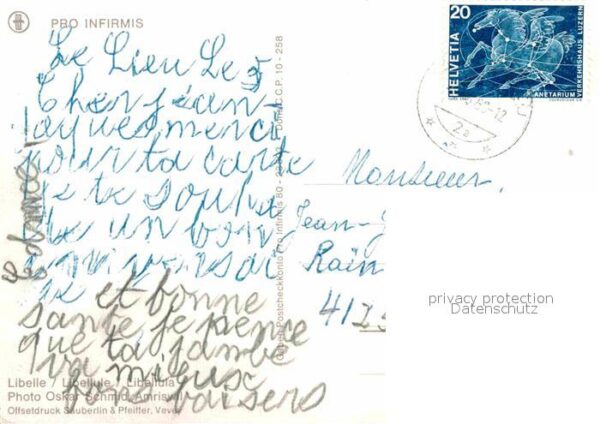 PRO INFIRMIS
Le Lieu Le 5
Cher Jean
Jaques merci
pour ta carte
je te souhe
te un bon
anniversai
re et bonne
sante je pence
que ta jambe
va mieux
bons baisers
Libelle / Libellule / Libellula
Photo Oskar Schmid, Amriswil
Offsetdruck Säuberlin & Pfeiffer, Vevey
Postcheckkonto Pro Infirmis 80
C.P. 10 - 258
20
HELVETIA
PLANETARIUM
VERKEHRSHAUS LUZERN
Monsieur
Jean-J
Rain
4125
privacy protection
Datenschutz